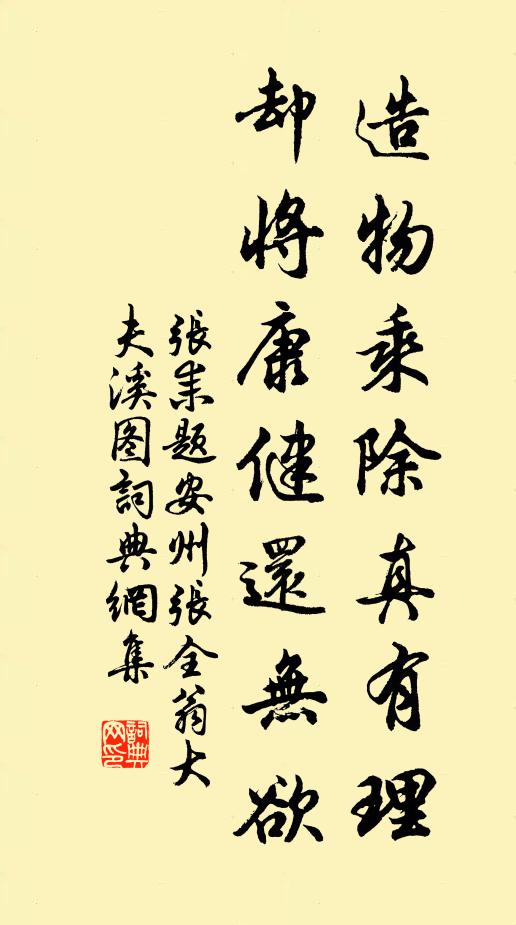 造物乘除真有理
却將康健還無欲
張耒題安州張全翁大
夫溪图詞典網集
詞典網印